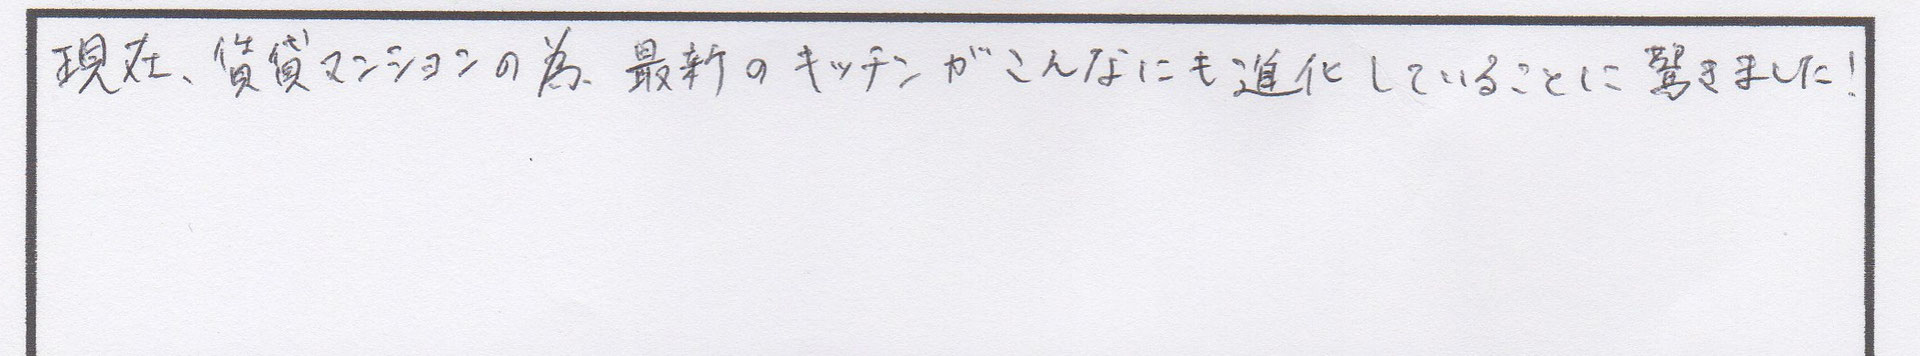 現在、賃貸マンションの為、最新のキッチンがこんなにも進化していることに驚きました!